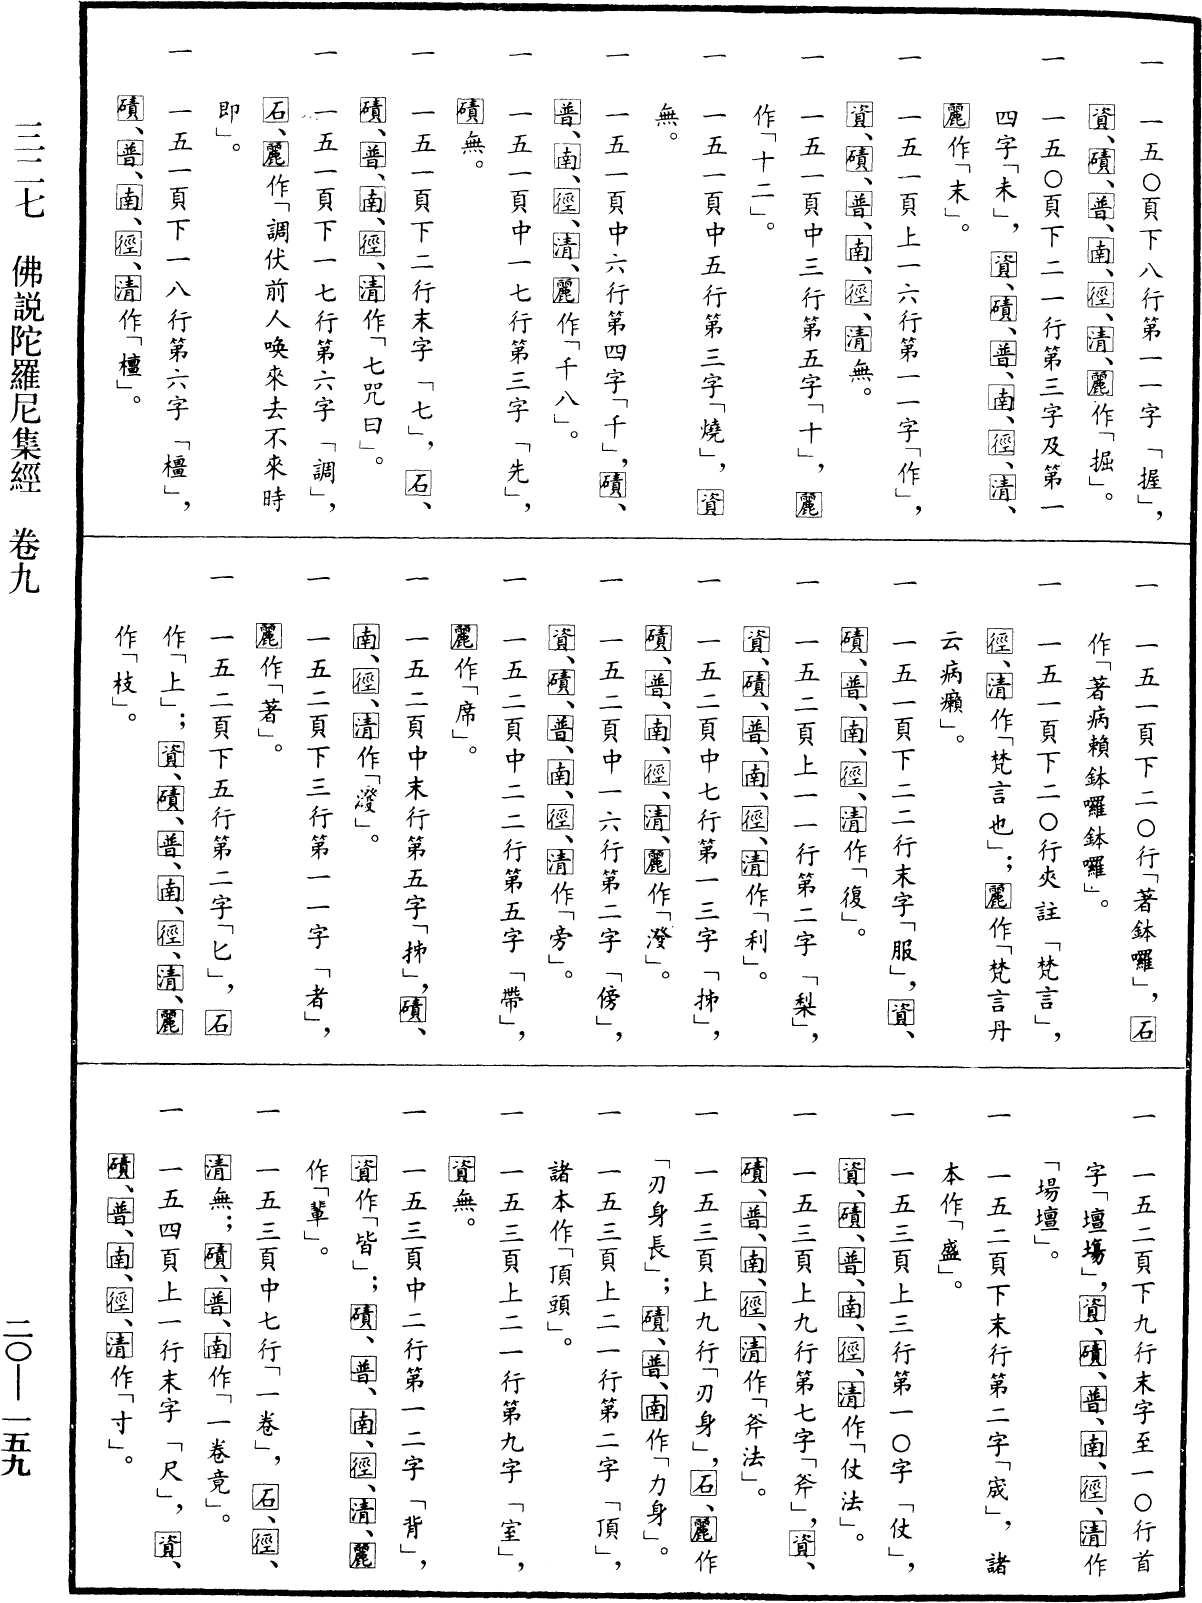 三二七　佛説陀羅尼集經　卷九
二〇—一五九
一　一五〇頁下八行第一一字「握」，
資、磧、普、南、徑、清、麗作「掘」。
一　一五〇頁下二一行第三字及第一
四字「未」，資、磧、普、南、徑、清、
麗作「末」。
一　一五一頁上一六行第一一字「作」，
資、磧、普、南、徑、清無。
一　一五一頁中三行第五字「十」，麗
作「十二」。
一　一五一頁中五行第三字「燒」，資
無。
一　一五一頁中六行第四字「千」，磧、
普、南、徑、清、麗作「千八」。
一　一五一頁中一七行第三字「先」，
磧無。
一　一五一頁下二行末字「七」，石、
磧、普、南、徑、清作「七咒曰」。
一　一五一頁下一七行第六字「調」，
石、麗作「調伏前人喚來去不來時
即」。
一　一五一頁下一八行第六字「橿」，
磧、普、南、徑、清作「檀」。
一　一五一頁下二〇行「著鉢囉」，石
作「著病賴鉢囉鉢囉」。
一　一五一頁下二〇行夾註「梵言」，
徑、清作「梵言也」；麗作「梵言丹
云病癩」。
一　一五一頁下二二行末字「服」，資、
磧、普、南、徑、清作「復」。
一　一五二頁上一一行第二字「梨」，
資、磧、普、南、徑、清作「利」。
一　一五二頁中七行第一三字「抪」，
磧、普、南、徑、清、麗作「潑」。
一　一五二頁中一六行第二字「傍」，
資、磧、普、南、徑、清作「旁」。
一　一五二頁中二二行第五字「帶」，
麗作「席」。
一　一五二頁中末行第五字「抪」，磧、
南、徑、清作「潑」。
一　一五二頁下三行第一一字「者」，
麗作「著」。
一　一五二頁下五行第二字「匕」，石
作「上」；資、磧、普、南、徑、清、麗
作「枝」。
一　一五二頁下九行末字至一〇行首
字「壇塲」，資、磧、普、南、徑、清作
「場壇」。
一　一五二頁下末行第二字「宬」，諸
本作「盛」。
一　一五三頁上三行第一〇字「仗」，
資、磧、普、南、徑、清作「仗法」。
一　一五三頁上九行第七字「斧」，資、
磧、普、南、徑、清作「斧法」。
一　一五三頁上九行「刃身」，石、麗作
「刃身長」；磧、普、南作「力身」。
一　一五三頁上二一行第二字「頂」，
諸本作「頂頭」。
一　一五三頁上二一行第九字「室」，
資無。
一　一五三頁中二行第一二字「背」，
資作「皆」；磧、普、南、徑、清、麗
作「輩」。
一　一五三頁中七行「一卷」，石、徑、
清無；磧、普、南作「一卷竟」。
一　一五四頁上一行末字「尺」，資、
磧、普、南、徑、清作「寸」。